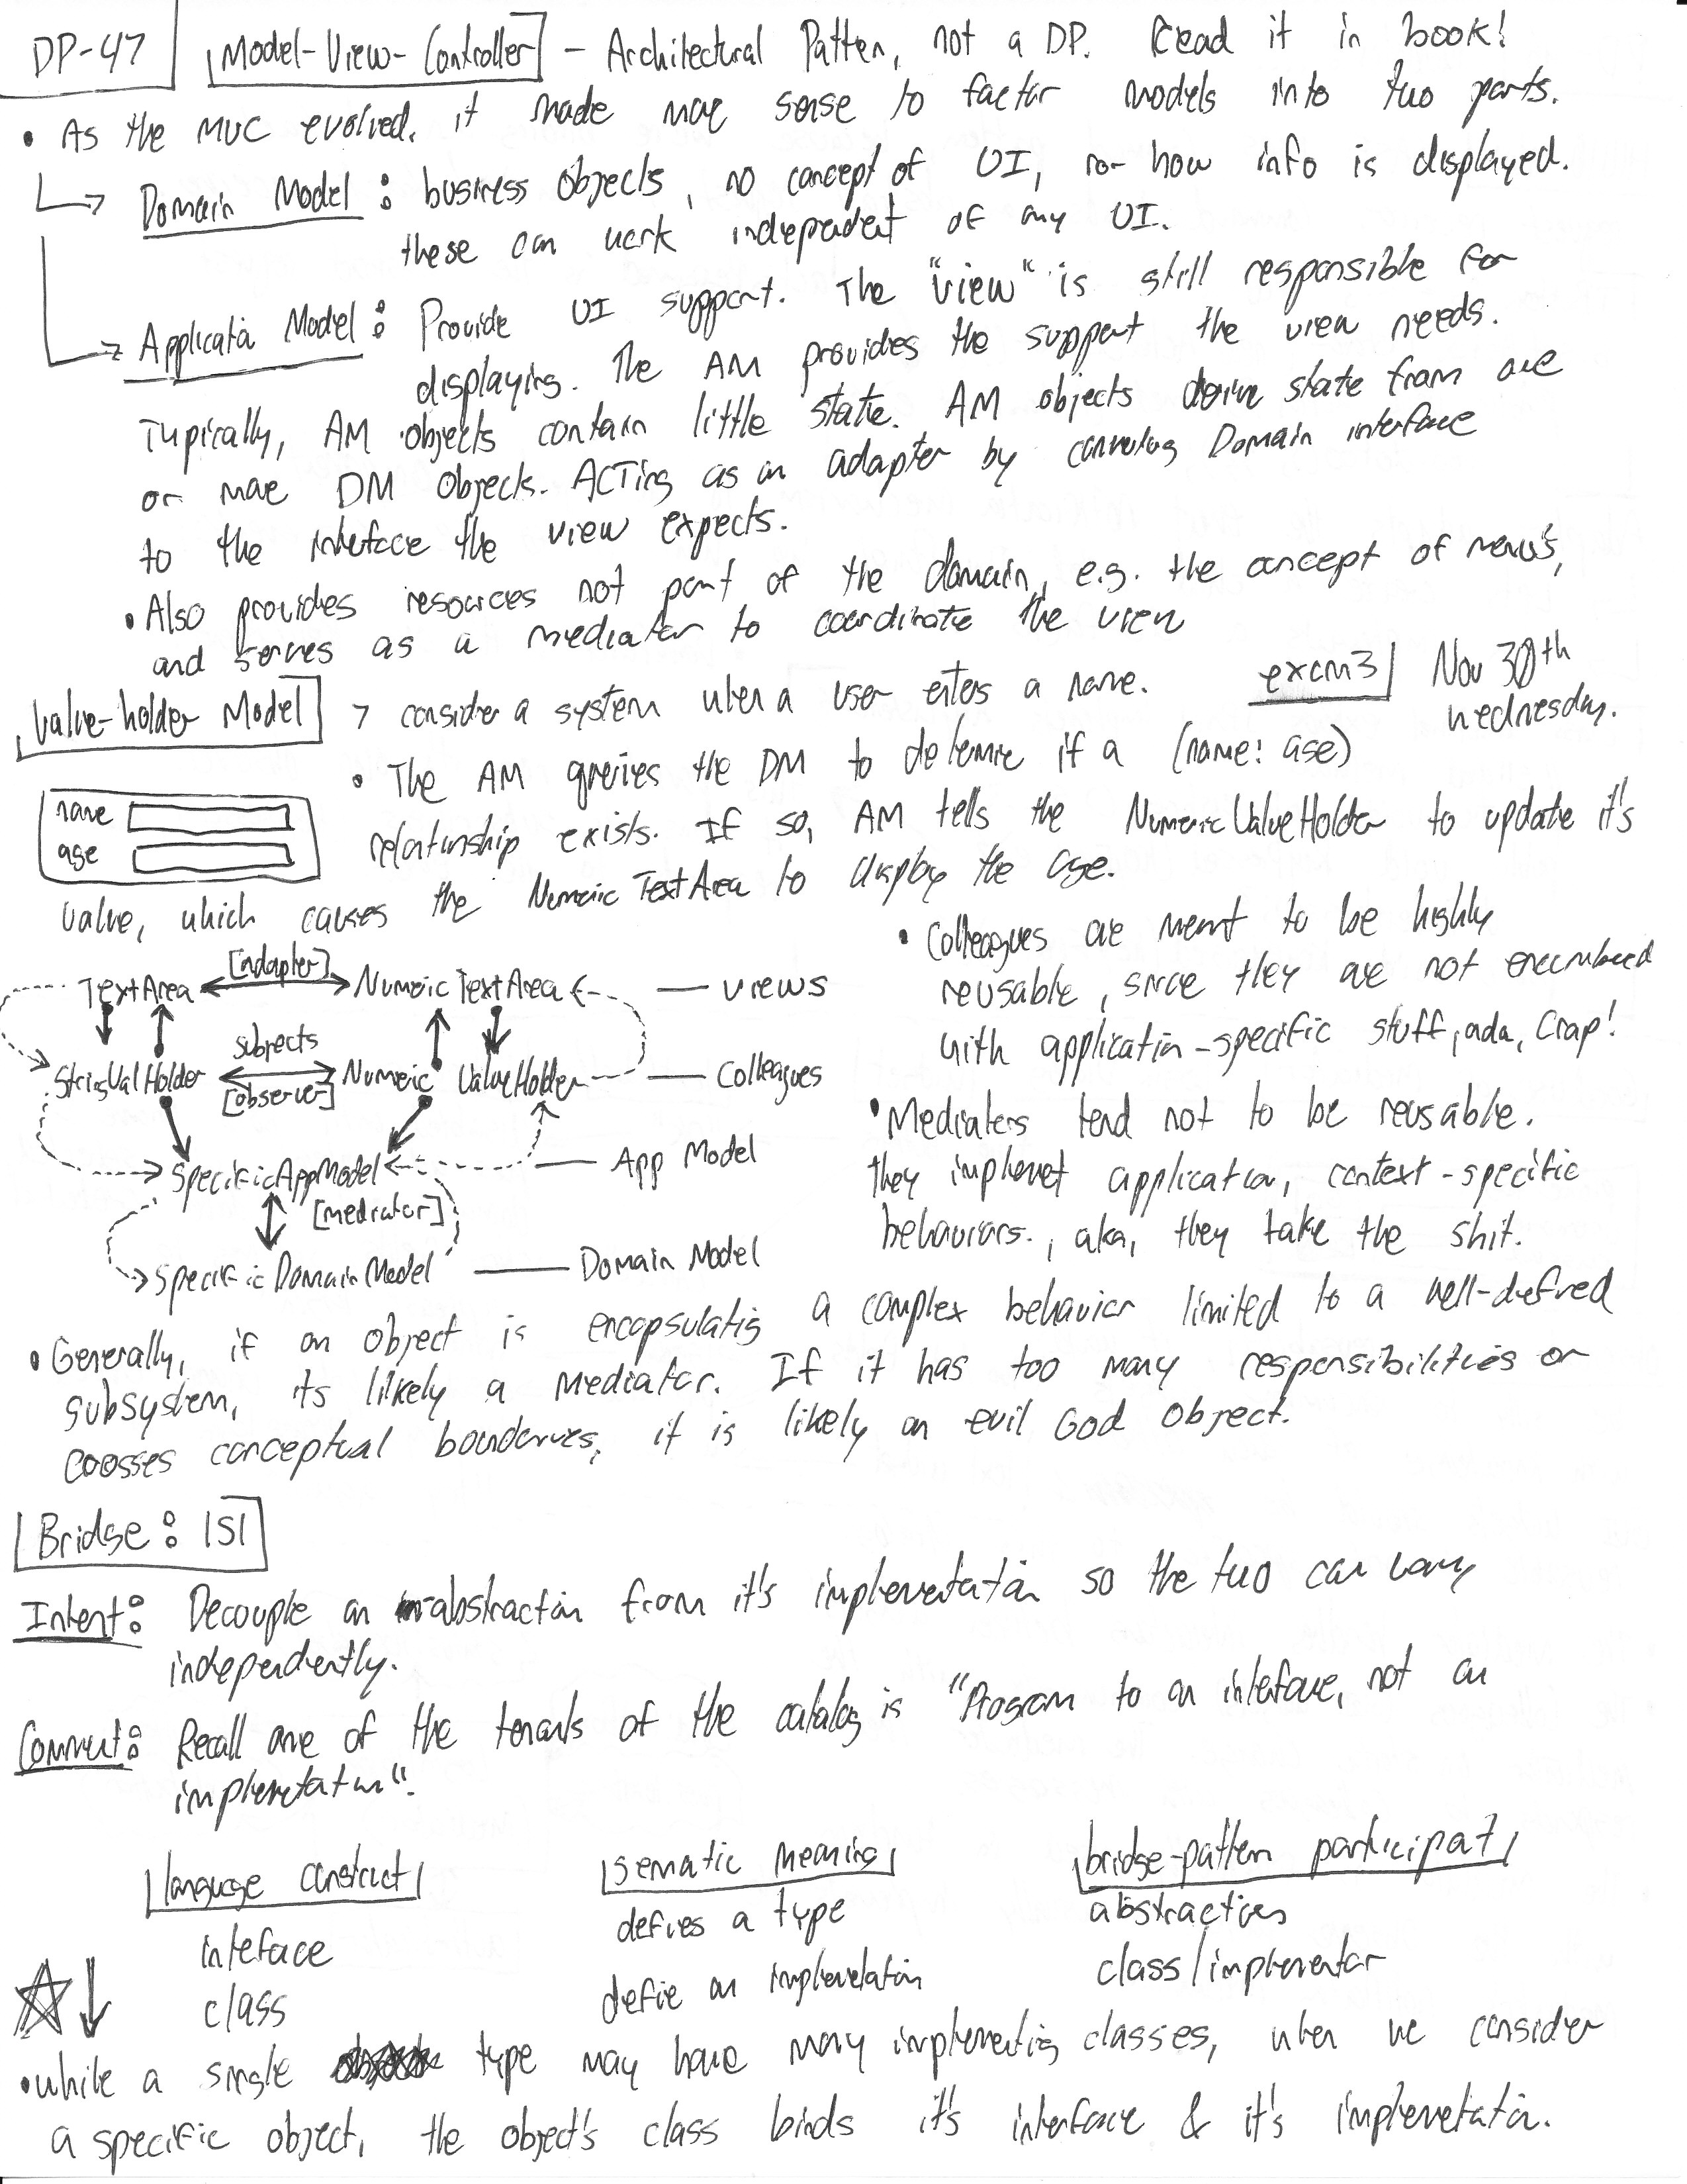 DP-47
Model-View-Controller - Architectural Pattern, not a DP. Read it in book!
• As the MVC evolved, it made more sense to factor models into two parts.
Domain Model: business objects, no concept of UI, nor how info is displayed.
these can work independent of any UI.
Application Model: Provide UI support. The "view" is still responsible for
displaying. The AM provides the support the view needs.
Typically, AM objects contain little state. AM objects derive state from one
or more DM objects. Acting as an adapter by converting Domain interface
to the interface the view expects.
• Also provides resources not part of the domain, e.g. the concept of menu's,
and serves as a mediator to coordinate the view
exam3 Nov 30th
Wednesday.
Value-holder Model > consider a system when a user enters a name.
• The AM queries the DM to determine if a (name: age)
name
age
relationship exists. If so, AM tells the NumericValueHolder to update it's
value, which causes the NumericTextArea to display the age.
TextArea [adapter] NumericTextArea — views
subjects
StringValHolder [observer] Numeric ValueHolder — Colleagues
SpecificAppModel — App Model
[mediator]
Specific DomainModel — Domain Model
• Colleagues are meant to be highly
reusable, since they are not encumbered
with application-specific stuff, ada, Crap!
• Mediators tend not to be reusable.
they implement application, context-specific
behaviors., aka, they take the shit.
• Generally, if an object is encapsulating a complex behavior limited to a well-defined
subsystem, its likely a mediator. If it has too many responsibilities or
crosses conceptual boundaries, it is likely an evil God Object.
Bridge: 151
Intent: Decouple an abstraction from it's implementation so the two can vary
independently.
Comment: Recall one of the tenants of the catalog is "Program to an interface, not an
implementation".
language construct semantic meaning bridge-pattern participant
interface defines a type abstraction
class define an implementation class/implementor
• while a single type may have many implementing classes, when we consider
a specific object, the object's class binds it's interface & it's implementation.